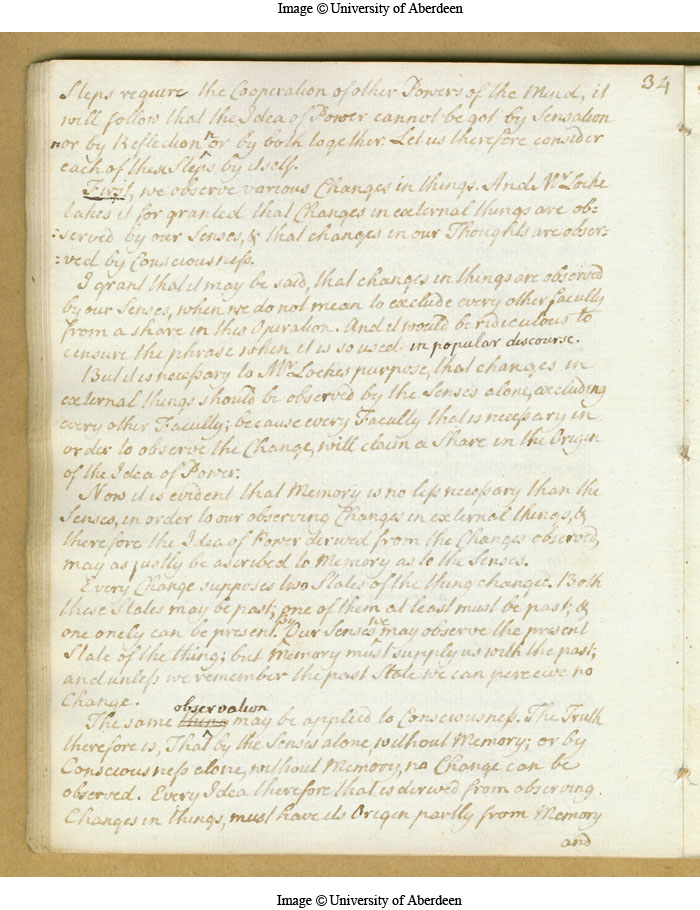 Image © University of Aberdeen
34
Steps require the Cooperation of other Powers of the Mind, it
will follow that the Idea of Power cannot be got by Sensation
nor by Reflection nr or by both together. Let us therefore consider
each of these Steps by itself.
First, we observe various Changes in things. And Mr Locke
takes it for granted that Changes in external things are ob=
=served by our Senses, & that changes in our Thoughts are obser=
=ved by Consciousness.
I grant that it may be said, that changes in things are observed
by our Senses, when we do not mean to exclude every other faculty
from a share in this Operation. And it would be ridiculous to
censure the phrase when it is so used in popular discourse.
But it is necessary to Mr Lockes purpose, that changes in
external things should be observed by the Senses alone, excluding
every other Faculty; because every Faculty that is necessary in
order to observe the Change, will claim a Share in the Origin
of the Idea of Power.
Now it is evident that Memory is no less necessary than the
Senses, in order to our observing Changes in external things, &
therefore the Idea of Power derived from the Changes observed,
may as justly be ascribed to Memory as to the Senses.
Every Change supposes two States of the thing changed. Both
these States may be past; one of them at least must be past; &
one onely can be present. By Our Senses we may observe the present
State of the thing; but Memory must supply us with the past;
and unless we remember the past State we can perceive no
Change.
The same thing observation may be applied to Consciousness. The Truth
therefore is, That by the Senses alone, without Memory; or by
Consciousness alone, without Memory, no Change can be
observed. Every Idea therefore that is derived from observing
Changes in things, must have its Origin partly from Memory
and
Image © University of Aberdeen